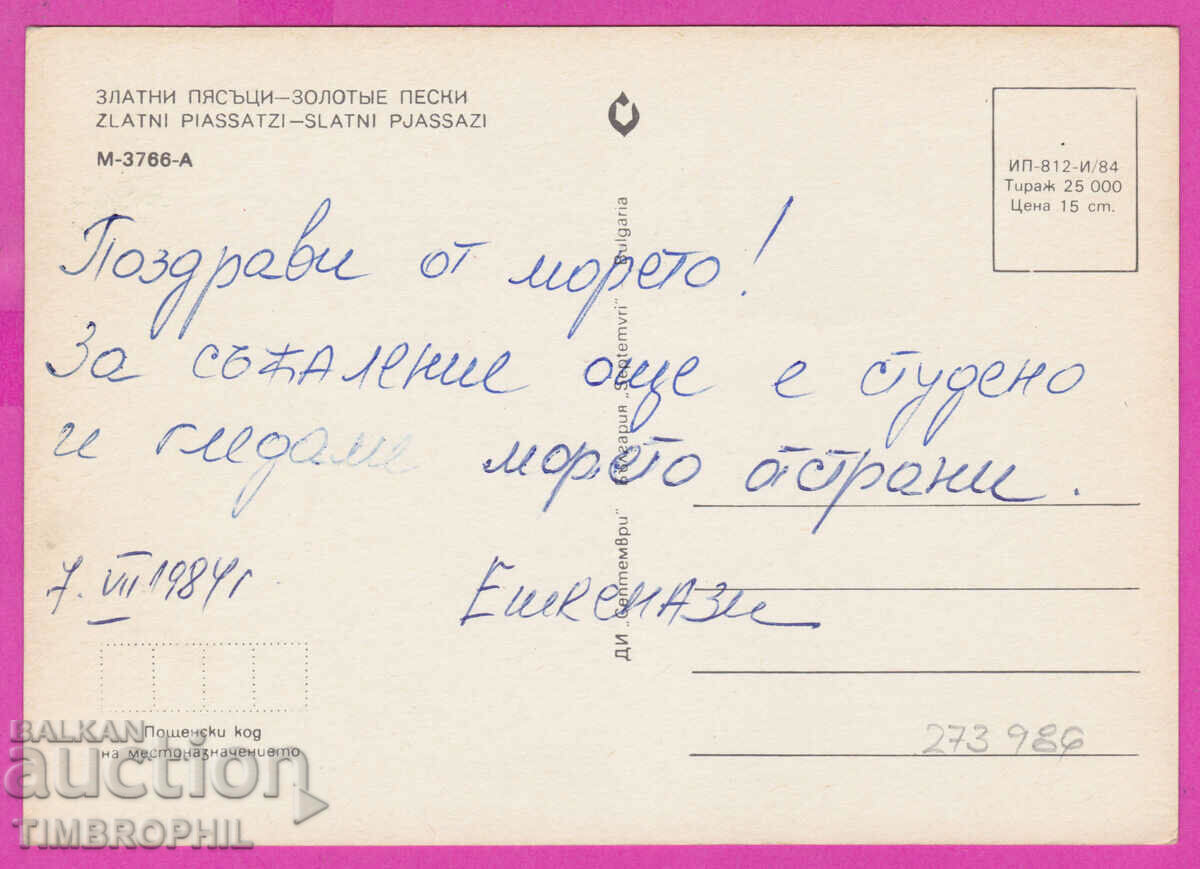 ЗЛАТНИ ПЯСЪЦИ—ЗОЛОТЫЕ ПЕСКИ
ZLATNI PIASSATZI—SLATNI PJASSAZI
М-3766-А
ИП-812-И/84
Тираж 25 000
Цена 15 ст.
Поздрави от морето!
За съжаление още е студено
и гледаме морето отстрани.
7.VII 1984г
Ешкенази
ДИ „Септември" България „Septemvri" Bulgaria
Пощенски код
на местоназначението
273986
BALKAN
auction
TIMBROPHIL